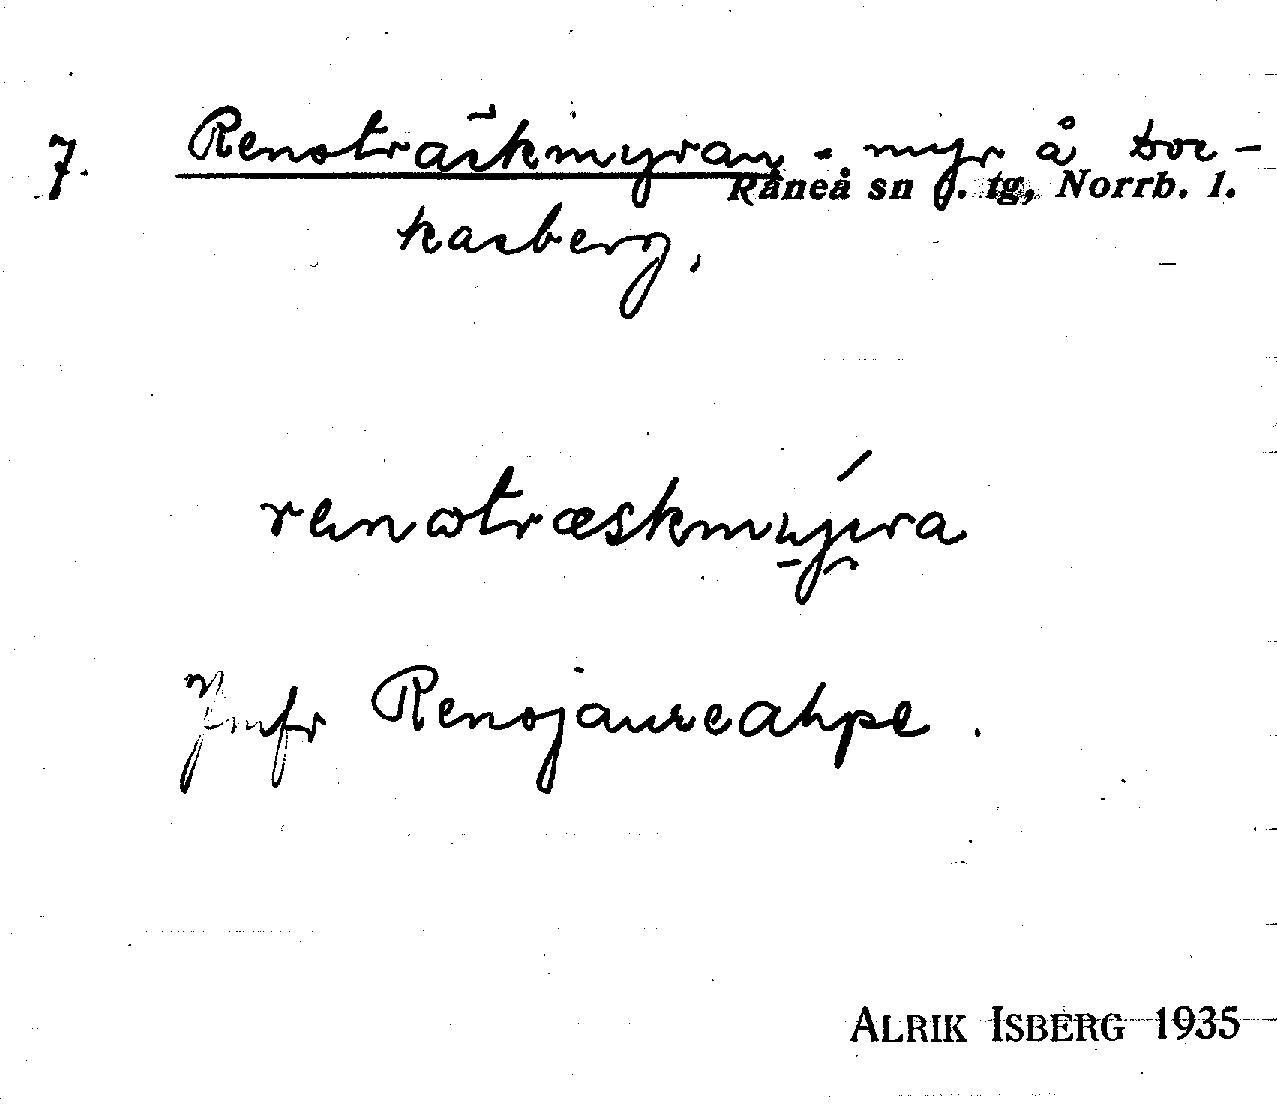 7. Renoträskmyran - myr å Doc-
Råneå sn o. tg, Norrb. l.
kasberg.
renotræskmyra
Jmfr Renojaureahpe.
ALRIK ISBERG 1935